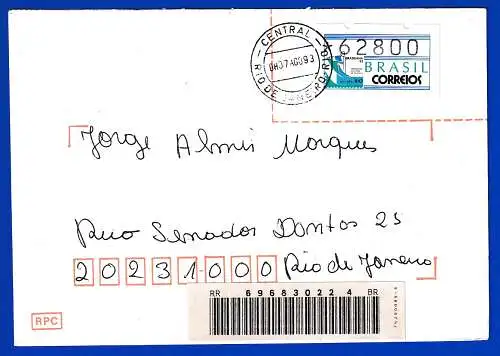 CENTRAL
RIO DE JANEIRO-RJ
62800
BRASIL
CORREIOS
Jorge Almir Marques
Rua Senador Dantas 25
20231-000 Rio de Janeiro
RR 69683022 4 BR
RPC